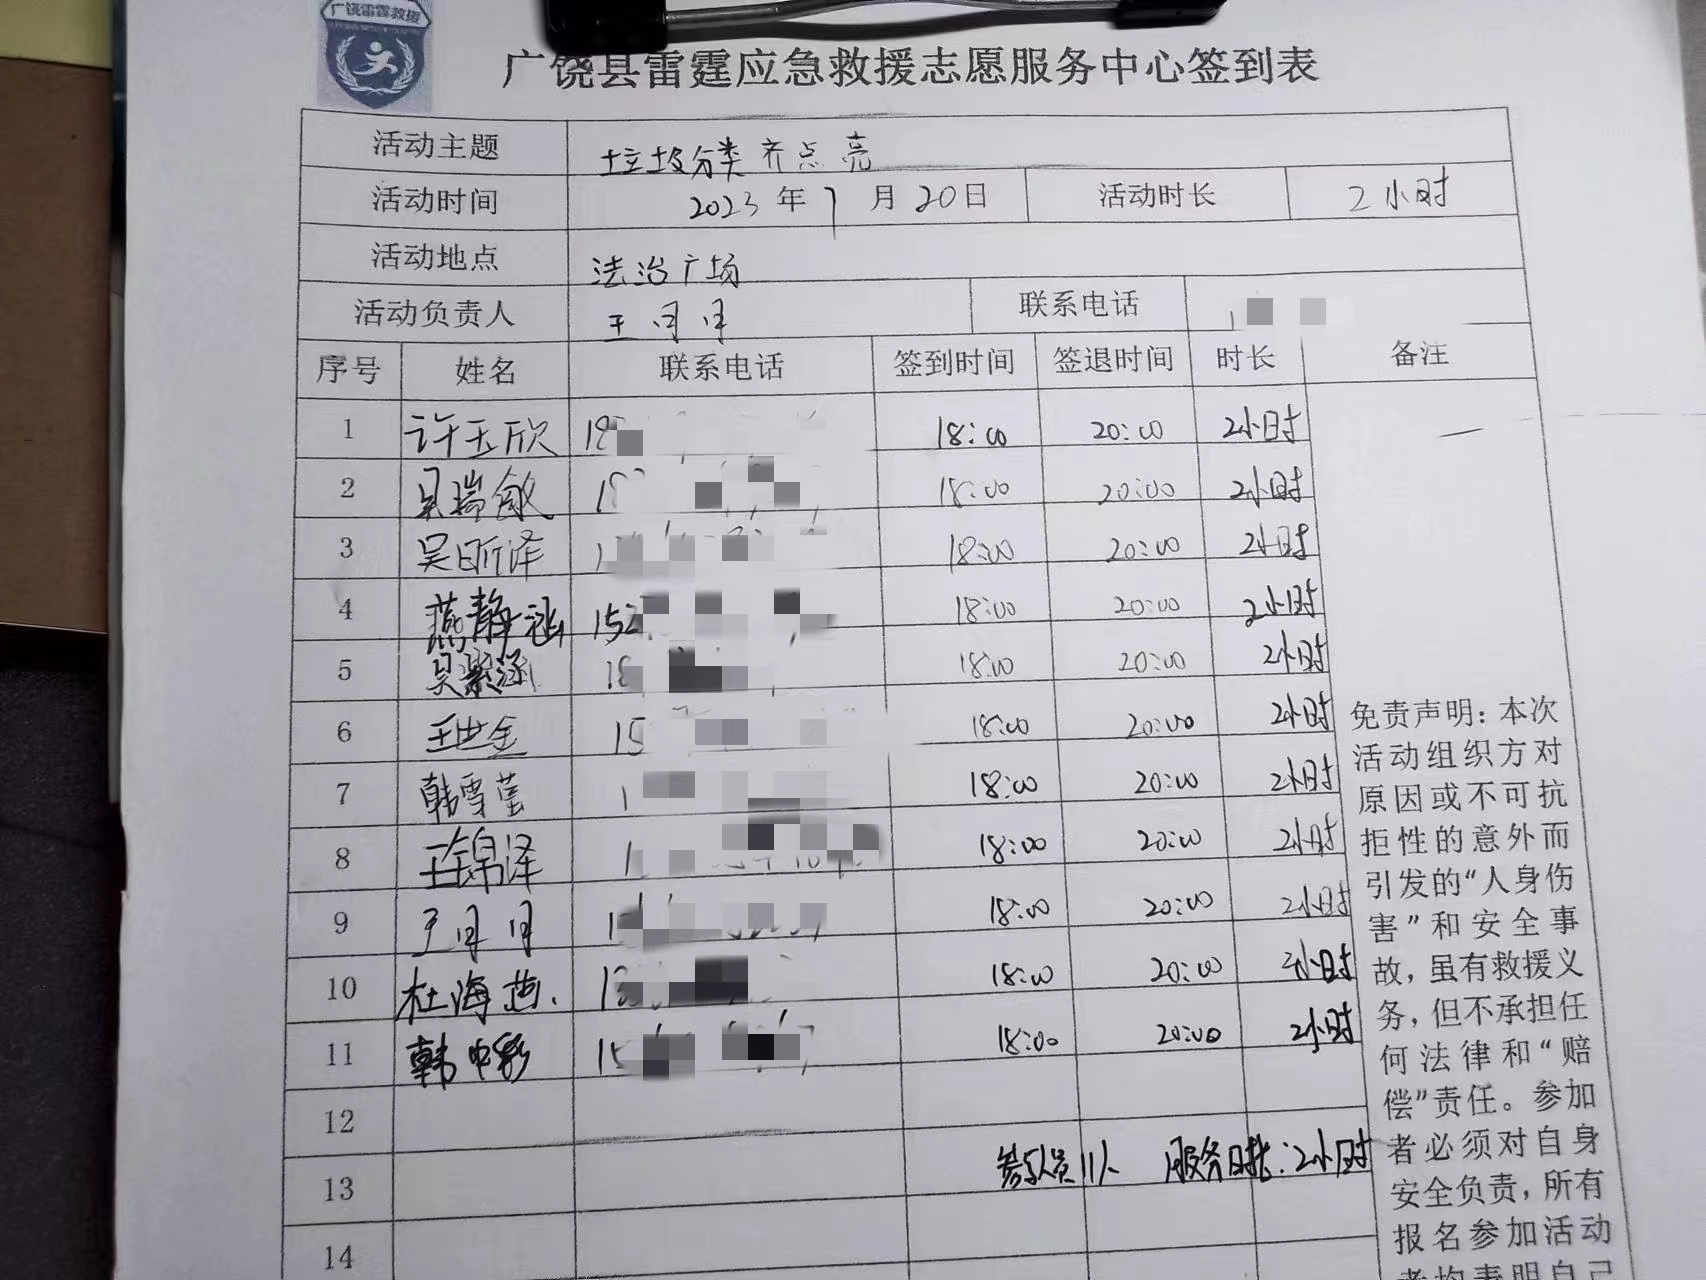 广饶雷霆救援
广饶县雷霆应急救援志愿服务中心签到表
活动主题 垃圾分类齐点亮
活动时间 2023年7月20日 活动时长 2小时
活动地点 法治广场
活动负责人 王月月 联系电话 1
序号 姓名 联系电话 签到时间 签退时间 时长 备注
1 许玉欣 18:00 20:00 2小时
2 吴瑞敏 18 18:00 20:00 2小时
3 吴昕泽 1 18:00 20:00 2小时
4 燕静涵 152 18:00 20:00 2小时
5 吴紫涵 18 18:00 20:00 2小时
6 王世金 15 18:00 20:00 2小时
7 韩雪莹 1 18:00 20:00 2小时
8 王锦泽 1 18:00 20:00 2小时
9 王月月 1 18:00 20:00 2小时
10 杜海燕 1 18:00 20:00 2小时
11 韩中彩 15 18:00 20:00 2小时
12
13 参与人员11人 服务时长:2小时
14
免责声明：本次
活动组织方对
原因或不可抗
拒性的意外而
引发的“人身伤
害”和安全事
故，虽有救援义
务，但不承担任
何法律和“赔
偿”责任。参加
者必须对自身
安全负责，所有
报名参加活动
者均表明自己